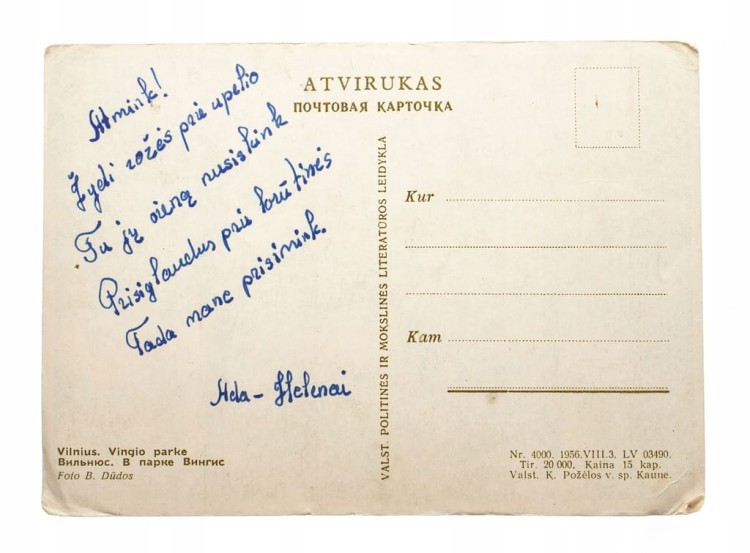 Atmink!
Žydi rožės prie upelio
Tu jų vieną nusiskink
Prisiglaudus prie krūtinės
Tada mane prisimink.
Ada – Helenai
Vilnius. Vingio parke
Вильнюс. В парке Вингис
Foto B. Dūdos
VALST. POLITINĖS IR MOKSLINĖS LITERATŪROS LEIDYKLA
ATVIRUKAS
ПОЧТОВАЯ КАРТОЧКА
Kur
Kam
Nr. 4000. 1956.VIII.3. LV 03490.
Tir. 20 000. Kaina 15 kap.
Valst. K. Požėlos v. sp. Kaune.